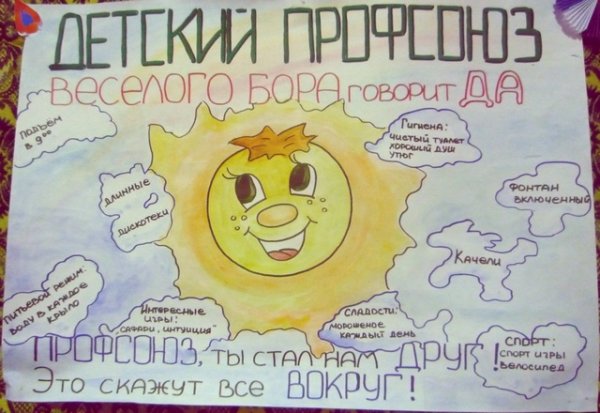 ДЕТСКИЙ ПРОФСОЮЗ
ВЕСЕЛОГО БОРА ГОВОРИТ ДА
ПОДЪЁМ
В 9⁰⁰
ГИГИЕНА:
ЧИСТЫЙ ТУАЛЕТ
ХОРОШИЙ ДУШ
УТЮГ
ДЛИННЫЕ
ДИСКОТЕКИ
ФОНТАН
ВКЛЮЧЕННЫЙ
КАЧЕЛИ
ПИТЬЕВОЙ РЕЖИМ:
ВОДУ В КАЖДОЕ
КРЫЛО
ИНТЕРЕСНЫЕ
ИГРЫ:
"САФАРИ, ИНТУИЦИЯ"
СЛАДОСТИ:
МОРОЖЕНОЕ
КАЖДЫЙ ДЕНЬ
СПОРТ:
СПОРТ ИГРЫ
ВЕЛОСИПЕД
ПРОФСОЮЗ, ТЫ СТАЛ НАМ ДРУГ!
ЭТО СКАЖУТ ВСЕ ВОКРУГ!